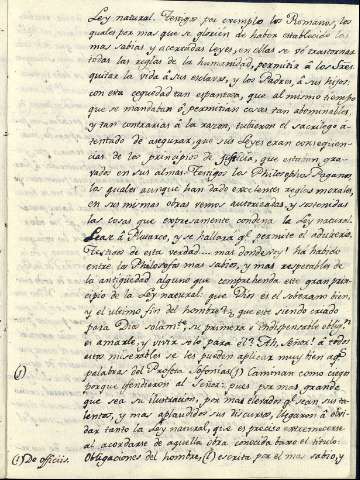 Ley natural. Tengo por exemplo los Romanos, los
quales por mas que se glorien de haber establecido las
mas sabias y acertadas leyes, en ellas se ve trastornar
todas las reglas de la humanidad, permitia á los
quitar la vida á sus esclavos, y los Padres, á sus hijos;
con era ceguedad tan espantosa, que al mismo tiempo
que se mandaban ó permitian cosas tan abominables,
y tan contrarias á la razon, tubieron el sacrilego a-
tentado de asegurar, que sus Leyes eran consequen-
cias de los principios de justicia, que estaban gra-
vados en sus almas. Tengo los Philosophos Paganos
los quales aunque han dado excelentes reglas morales,
en sus mismas obras vemos autorizadas, y sostenidas
las cosas que expresamente condena la Ley natural.
Lease á Plutarco, y se hallará qe. permite el adulterio.
Testigos de esta verdad.... mas donde voy! ha habido
entre los Philosofos mas sabios, y mas respetables de
la antigüedad alguno que comprehenda este gran prin-
cipio de la Ley natural: que Dios es el soberano bien,
y el ultimo fin del hombre, que este siendo criado
para Dios solamte., su primera é indispensable obligon.
es amarle, y vivir solo para él? Ah, Señor! á todos
estos miserables se les pueden aplicar muy bien aqs.
palabras del Profeta Sofonias(j) Caminan como ciegos
porque ofendieron al Señor: pues por mas grande
que sea su ilustracion, por mas elevados qe. sean sus ta-
lentos, y mas aplaudidos sus discursos, llegaron á olvi-
dar tanto la Ley natural, que es preciso extremecerse
al acordarse de aquella obra conocida baxo el titulo:
Obligaciones del hombre, (l) escrita por el mas sabio, y
(j)
(l) De officiis.